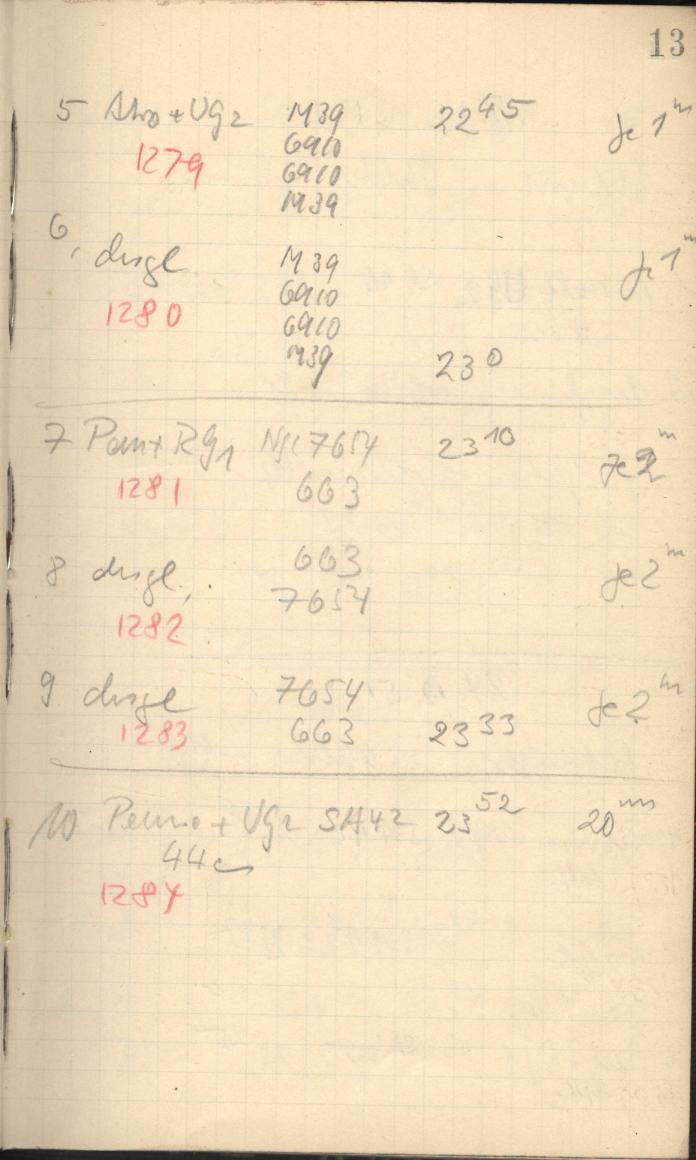 13
5 Astro + VG2 M39 22 45 je 1 m
1279 6910
6910
M39
6, dsgl M39 je 1 m
1280 6910
6910
M39 23 0
7 Pan + RG1 Ngc 7654 23 10 je 2 m
1281 663
8 dsgl, 663 je 2 m
7654
1282
9 dsgl 7654 je 2 m
1283 663 23 33
10 + VG2 SA42 23 52 20 m
44
1284